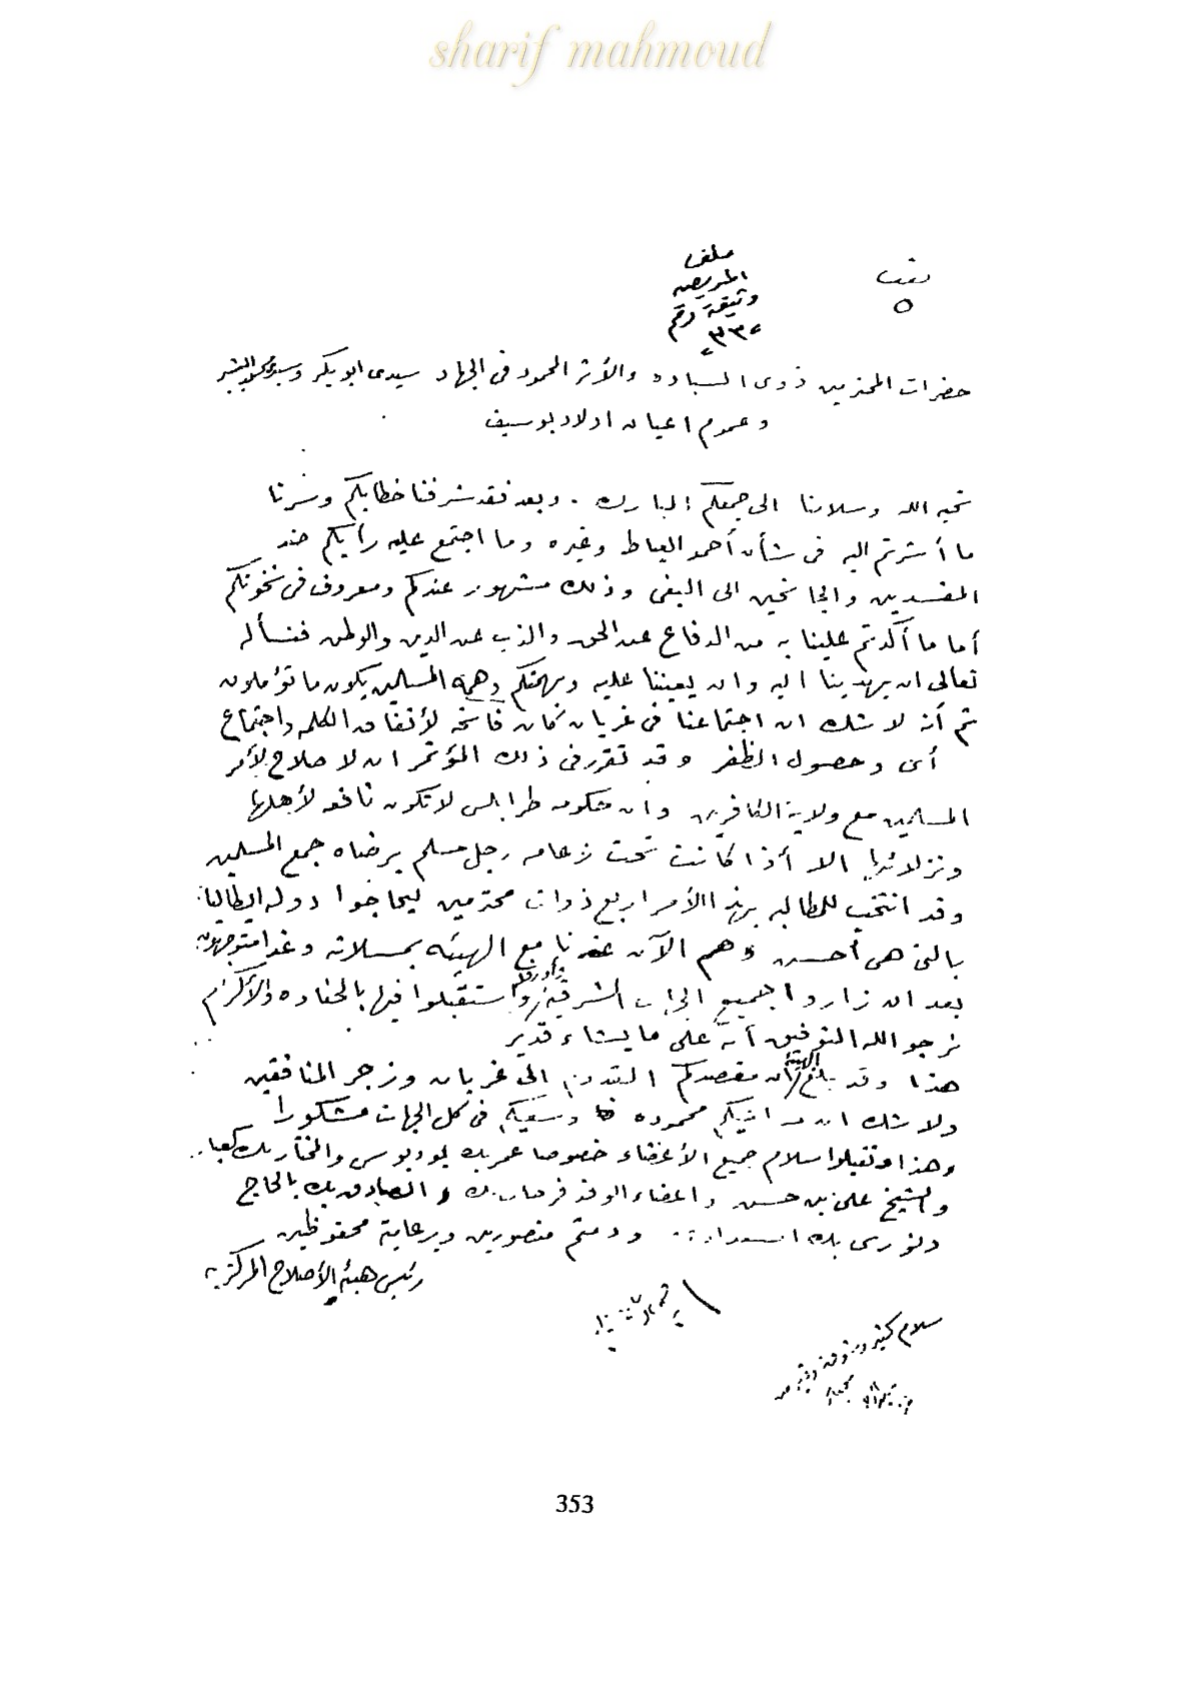 sharif mahmoud
ملف
المريض
وثيقة رقم
٣٣
حضرات المحترمين ذوى السياده والأثر المحمود فى الجهاد سيدى ابوبكر وسيدى محمد البشير
وعموم اعيان اولاد بوسيف
تحية الله وسلامنا الى جمعكم المبارك . وبعد فقد شرفنا خطابكم وسرنا
ما أشرتم اليه فى شأن أحمد العياط وغيره وما اجتمع عليه رأيكم ضد
المفسدين والجانحين الى البغى وذلك مشهور عندكم ومعروف فى نخوتكم
أما ما أكدتم علينا به من الدفاع عن الحق والذب عن الدين والوطن فنسأله
تعالى ان يهدينا اليه وان يعيننا عليه وبهمتكم وهمة المسلمين يكون ما تؤملون
ثم أنه لا شك ان اجتماعنا فى غريان كان فاتحة لأتفاق الكلمه واجتماع
أى وحصول الظفر وقد تقرر فى ذلك المؤتمر ان لا صلاح لأمر
المسلمين مع ولاية الكافرين وان حكومه طرابلس لا تكون نافعه لأهلها
ونزلائها الا أذا كانت تحت زعامه رجل مسلم يرضاه جمع المسلمين
وقد انتخب للمطالبه بهذا الأمر اربع ذوات محترمين ليحاجوا دوله ايطاليا
بالتى هى أحسن وهم الآن عندنا مع الهيئه بمسلاته وغدا متوجهون
بعد ان زاروا جميع الجهات الشرقية وأورفله واستقبلوا فيها بالحفاوه والأكرام
نرجو الله التوفيق أنه على ما يشاء قدير
هذا وقد بلغ الهيئة أن مقصدكم القدوم الى غريان وزجر المنافقين
ولا شك ان مساعيكم محموده وسعيكم فى كل الجهات مشكورا
وهذا وتقبلوا سلام جميع الأعضاء خصوصا عمر بك بودبوس والمختار بك كعبار
والشيخ على بن حسن واعضاء الوفد فرحات بك والصادق بك بالحاج
ونورى بك السعداوى ودمتم منصورين وبرعاية محفوظين
رئيس هيئة الأصلاح المركزيه
سلام كثير
353